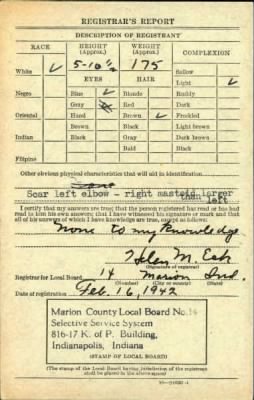 REGISTRAR'S REPORT
DESCRIPTION OF REGISTRANT
RACE HEIGHT (Approx.) WEIGHT (Approx.) COMPLEXION
White ✓ 5-10½ 175 Sallow
EYES HAIR Light ✓
Negro Blue ✓ Blonde Ruddy
Gray Red Dark
Oriental Hazel Brown ✓ Freckled
Brown Black Light brown
Indian Black Gray Dark brown
Bald Black
Filipino
Other obvious physical characteristics that will aid in identification
Scar left elbow - right mastoid larger
than left
I certify that my answers are true; that the person registered has read or has had
read to him his own answers; that I have witnessed his signature or mark and that
all of his answers of which I have knowledge are true, except as follows:
None to my Knowledge
Helen M.
(Signature of registrar)
Registrar for Local Board 14 Marion Ind.
(Number) (City or county) (State)
Date of registration Feb. 16, 1942
Marion County Local Board No. 14
Selective Service System
816-17 K. of P. Building,
Indianapolis, Indiana
(STAMP OF LOCAL BOARD)
(The stamp of the Local Board having jurisdiction of the registrant
shall be placed in the above space)